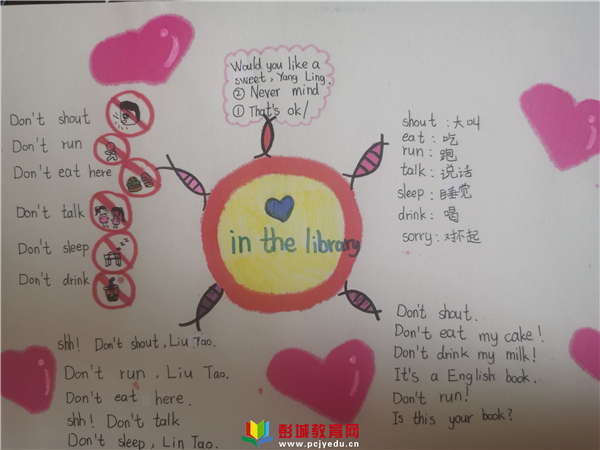 Would you like a
sweet, Yang Ling.
② Never mind
① That's ok/
Don't shout
Don't run
Don't eat here
Don't talk
Don't sleep
Don't drink
in the library
shout : 大叫
eat : 吃
run : 跑
talk : 说话
sleep : 睡觉
drink : 喝
sorry : 对不起
shh! Don't shout, Liu Tao.
Don't run, Liu Tao.
Don't eat here.
shh! Don't talk
Don't sleep, Lin Tao.
Don't shout.
Don't eat my cake!
Don't drink my milk!
It's a English book.
Don't run!
Is this your book?
彭城教育网
www.pcjyedu.cn